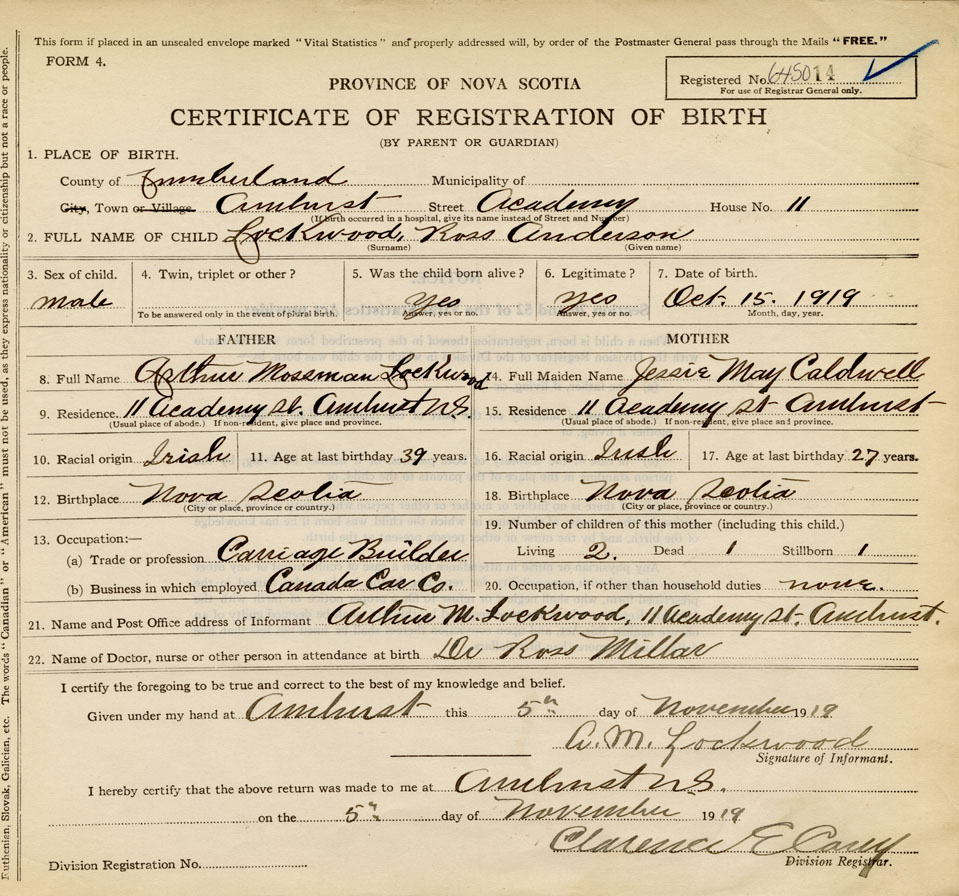 This form if placed in an unsealed envelope marked "Vital Statistics" and properly addressed will, by order of the Postmaster General pass through the Mails "FREE."
FORM 4.
Registered No. 645014
For use of Registrar General only.
PROVINCE OF NOVA SCOTIA
CERTIFICATE OF REGISTRATION OF BIRTH
(BY PARENT OR GUARDIAN)
1. PLACE OF BIRTH.
County of Cumberland Municipality of
City, Town or Village Amhurst Street Academy House No. 11
(If birth occurred in a hospital, give its name instead of Street and Number)
2. FULL NAME OF CHILD Lockwood, Ross Anderson
(Surname) (Given name)
3. Sex of child. 4. Twin, triplet or other? 5. Was the child born alive? 6. Legitimate? 7. Date of birth.
male yes yes Oct. 15. 1919
To be answered only in the event of plural birth. Answer, yes or no. Answer, yes or no. Month, day, year.
FATHER MOTHER
8. Full Name Arthur Mossman Lockwood 14. Full Maiden Name Jessie May Caldwell
9. Residence. 11 Academy st. Amhurst N.S. 15. Residence 11 Academy st Amhurst
(Usual place of abode.) If non-resident, give place and province. (Usual place of abode.) If non-resident, give place and province.
10. Racial origin Irish 11. Age at last birthday 39 years. 16. Racial origin Irish 17. Age at last birthday 27 years.
12. Birthplace Nova Scotia 18. Birthplace Nova Scotia
(City or place, province or country.) (City or place, province or country.)
13. Occupation:— 19. Number of children of this mother (including this child.)
(a) Trade or profession Carriage Builder Living 2. Dead 1 Stillborn 1
(b) Business in which employed Canada Car Co. 20. Occupation, if other than household duties none.
21. Name and Post Office address of Informant Arthur M. Lockwood, 11 Academy st. Amhurst.
22. Name of Doctor, nurse or other person in attendance at birth Dr Ross Millar
I certify the foregoing to be true and correct to the best of my knowledge and belief.
Given under my hand at Amhurst this 5th day of November 1919
A. M. Lockwood
Signature of Informant.
I hereby certify that the above return was made to me at Amhurst N.S.
on the 5th day of November 1919
Clarence E Casey
Division Registrar.
Division Registration No.
Ruthenian, Slovak, Galician, etc. The words "Canadian" or "American" must not be used, as they express nationality or citizenship but not a race or people.